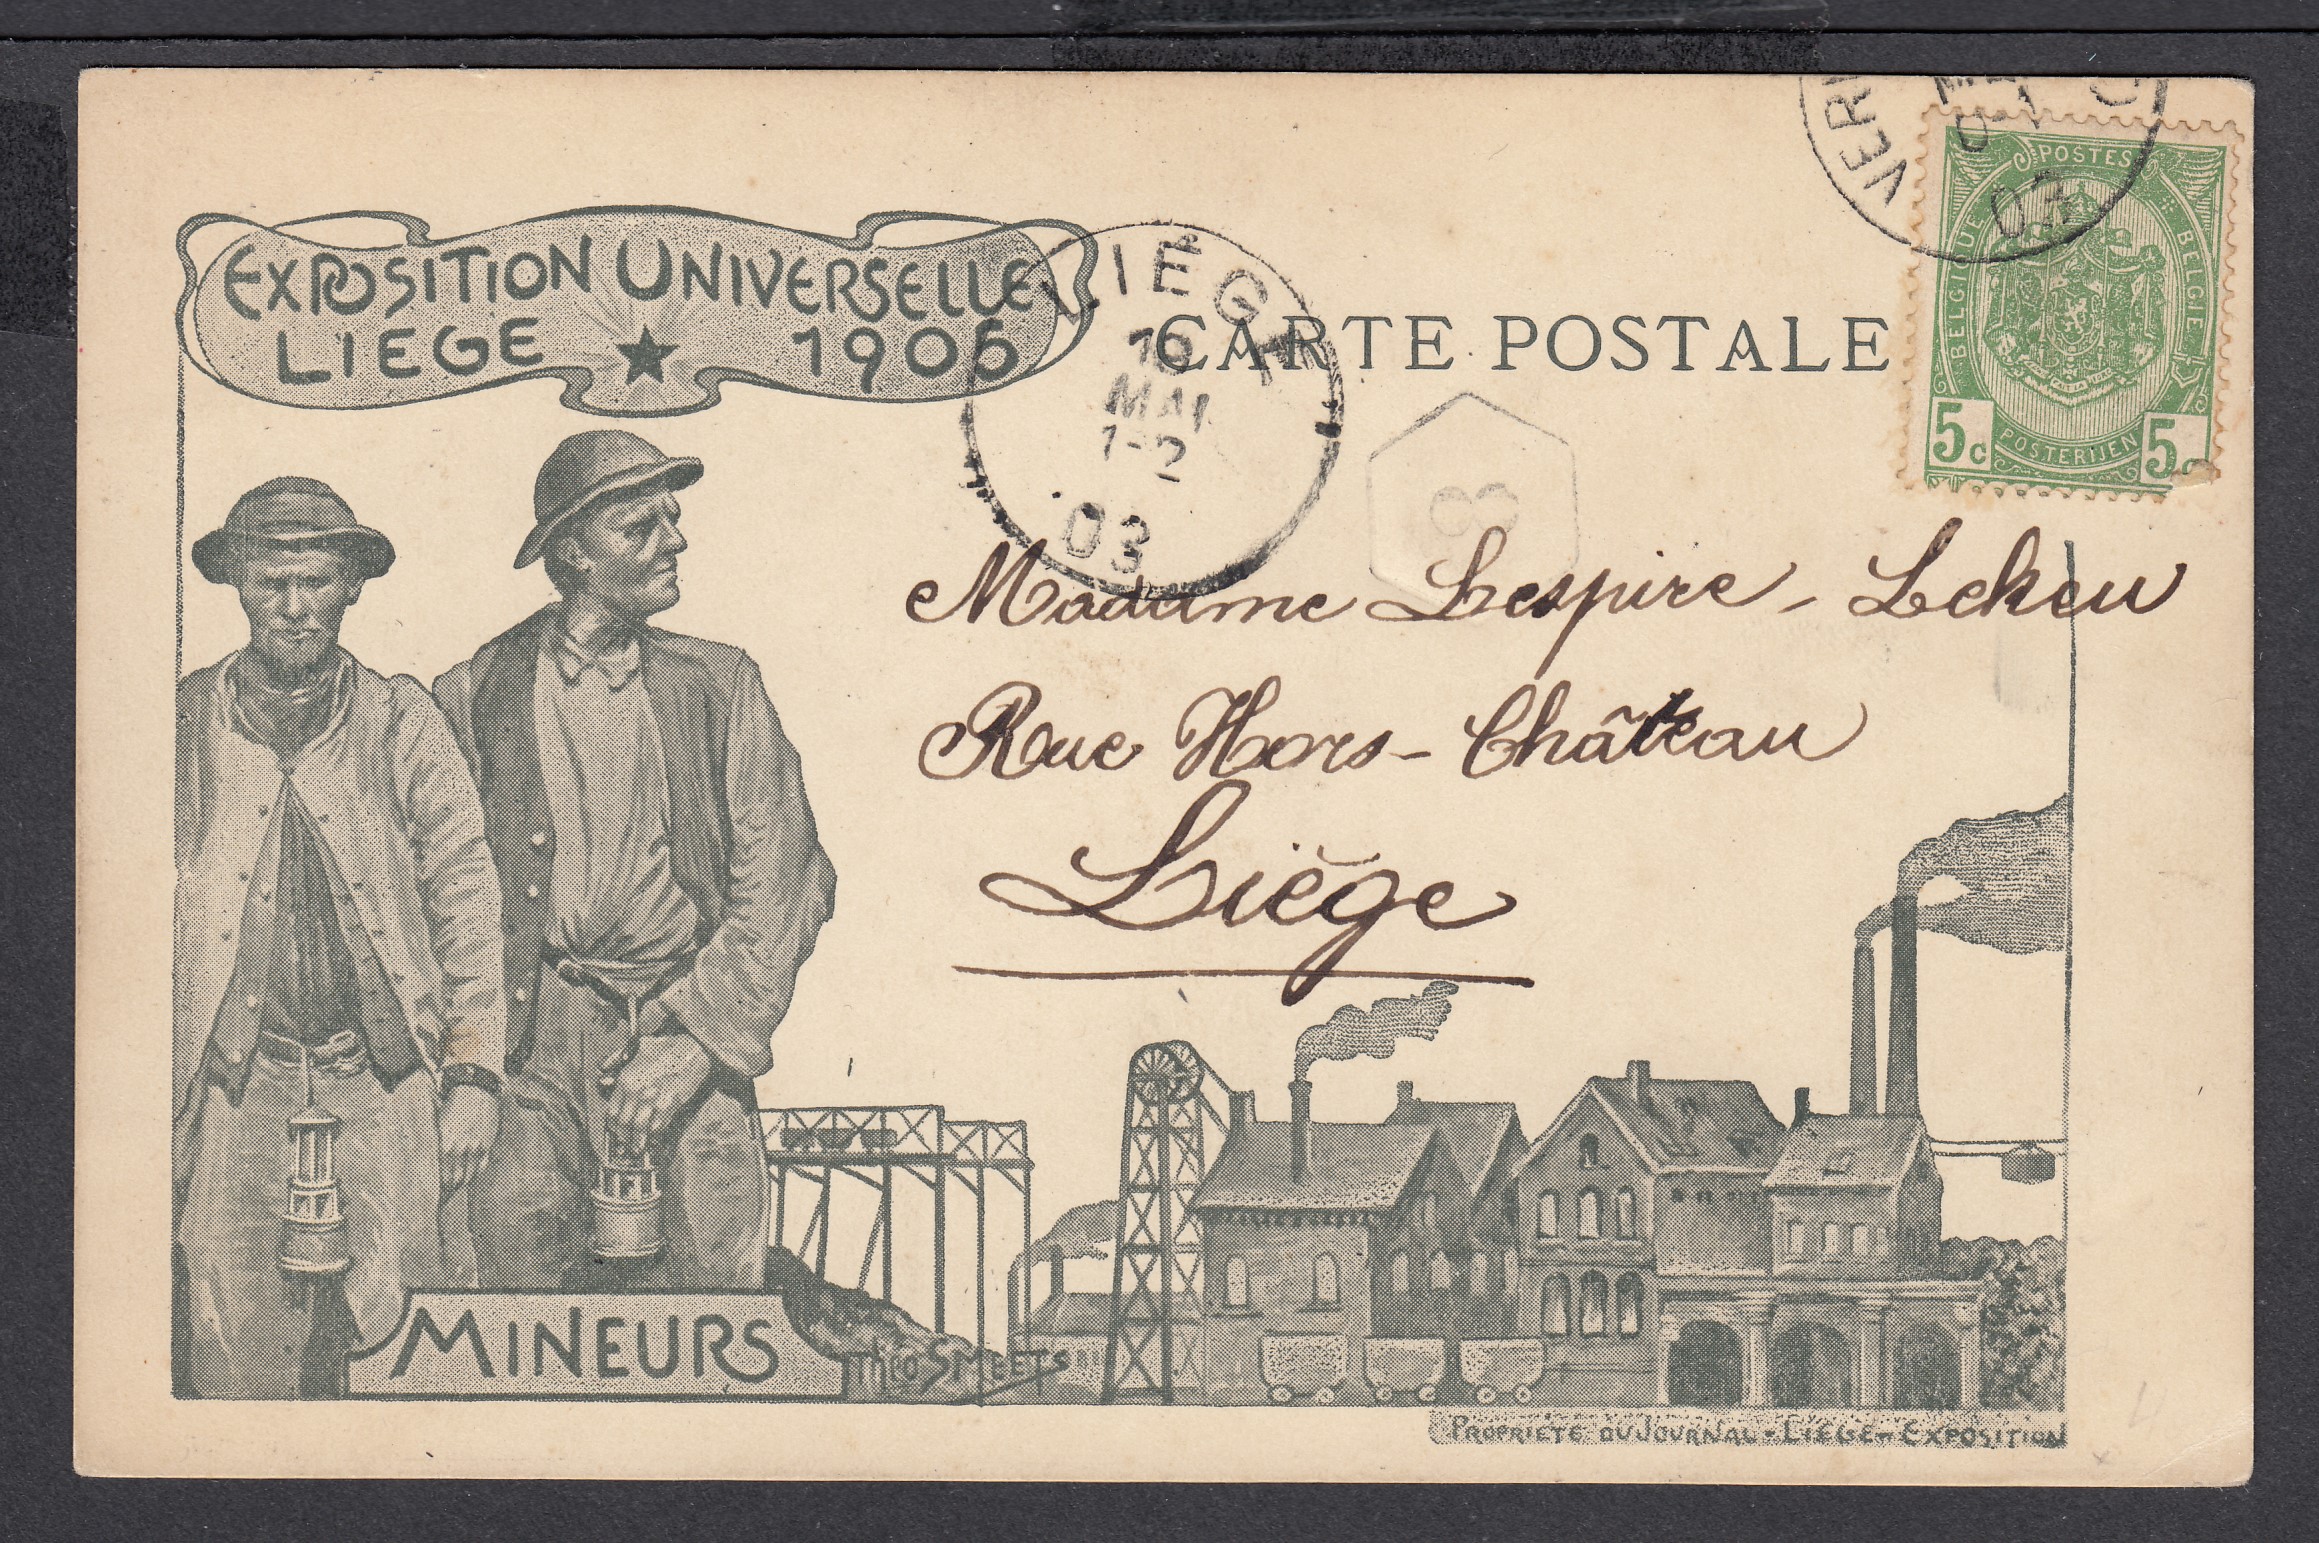 EXPOSITION UNIVERSELLE
LIEGE ★ 1905
CARTE POSTALE
LIÉGE
10
MAI
1-2
03
VER
03
POSTES
BELGIQUE
BELGIE
5c
POSTERIJEN
5c
8
Madame Lespire - Lekeu
Rue Hors-Château
Liège
MINEURS
THÉO SMEETS
PROPRIÉTÉ DU JOURNAL-LIÉGE-EXPOSITION